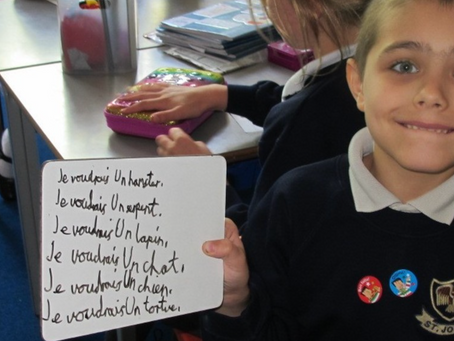 Je voudrais Un hamster.
Je voudrais Un serpent.
Je voudrais Un lapin.
Je voudrais Un chat.
Je voudrais Un chien.
Je voudrais Un tortue.
ST. JO